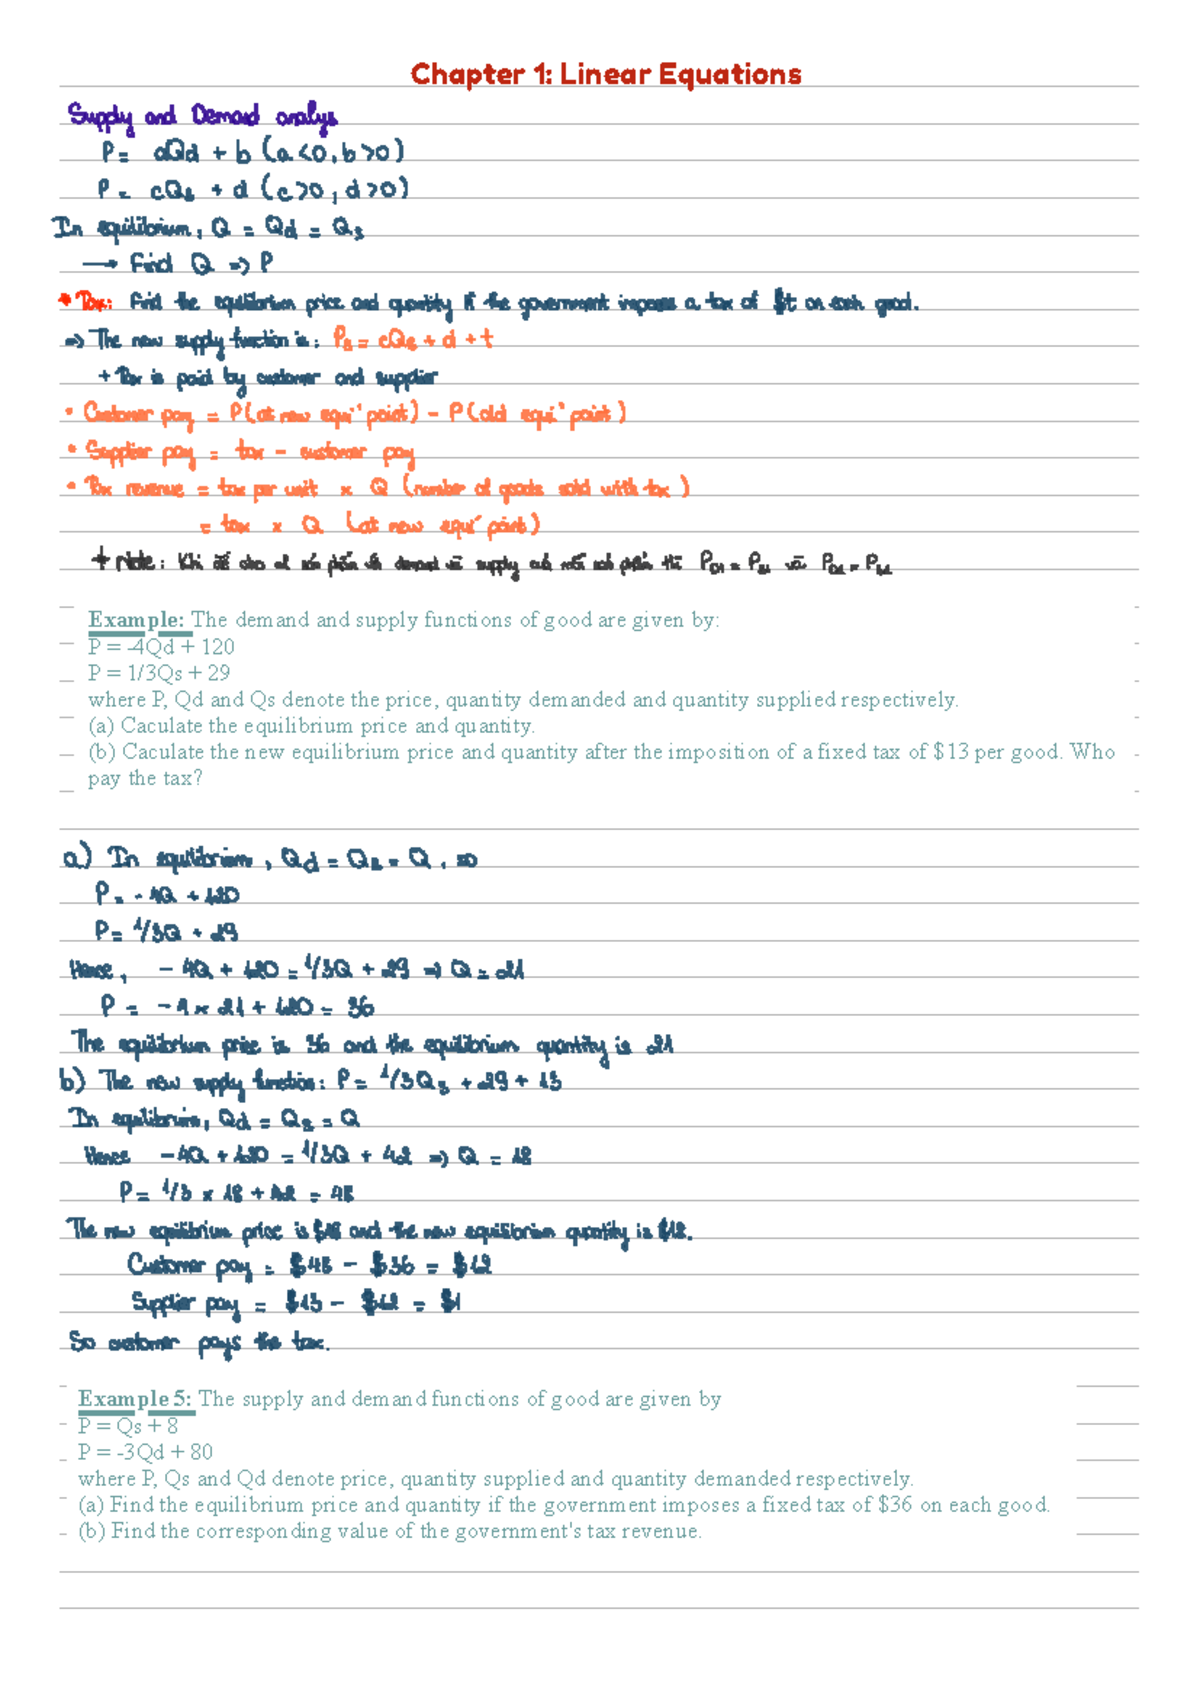 Chapter 1: Linear Equations
Supply and Demand analys
P = aQd + b (a<0, b>0)
P = cQs + d (c>0, d>0)
In equilibrium, Q = Qd = Qs
→ Find Q => P
* Tax: Find the equilibrium price and quantity if the government imposes a tax of $t on each good.
=> The new supply function is: Ps = cQs + d + t
+ Tax is paid by customer and supplier
• Customer pay = P (at new equi' point) - P (old equi' point)
• Supplier pay = tax - customer pay
• Tax revenue = tax per unit x Q (number of goods sold with tax)
= tax x Q (at new equi' point)
+ Note: Khi đề cho demand và supply thì và
Example: The demand and supply functions of good are given by:
P = -4Qd + 120
P = 1/3Qs + 29
where P, Qd and Qs denote the price, quantity demanded and quantity supplied respectively.
(a) Caculate the equilibrium price and quantity.
(b) Caculate the new equilibrium price and quantity after the imposition of a fixed tax of $13 per good. Who
pay the tax?
a) In equilibrium, Qd = Qs = Q, so
P = -4Q + 120
P = 1/3Q + 29
Hence, -4Q + 120 = 1/3Q + 29 => Q = 21
P = -4 x 21 + 120 = 36
The equilibrium price is 36 and the equilibrium quantity is 21
b) The new supply function: P = 1/3Qs + 29 + 13
In equilibrium, Qd = Qs = Q
Hence -4Q + 120 = 1/3Q + 42 => Q = 18
P = 1/3 x 18 + 42 = 48
The new equilibrium price is $48 and the new equilibrium quantity is $18.
Customer pay = $48 - $36 = $12
Supplier pay = $13 - $12 = $1
So customer pays the tax.
Example 5: The supply and demand functions of good are given by
P = Qs + 8
P = -3Qd + 80
where P, Qs and Qd denote price, quantity supplied and quantity demanded respectively.
(a) Find the equilibrium price and quantity if the government imposes a fixed tax of $36 on each good.
(b) Find the corresponding value of the government's tax revenue.